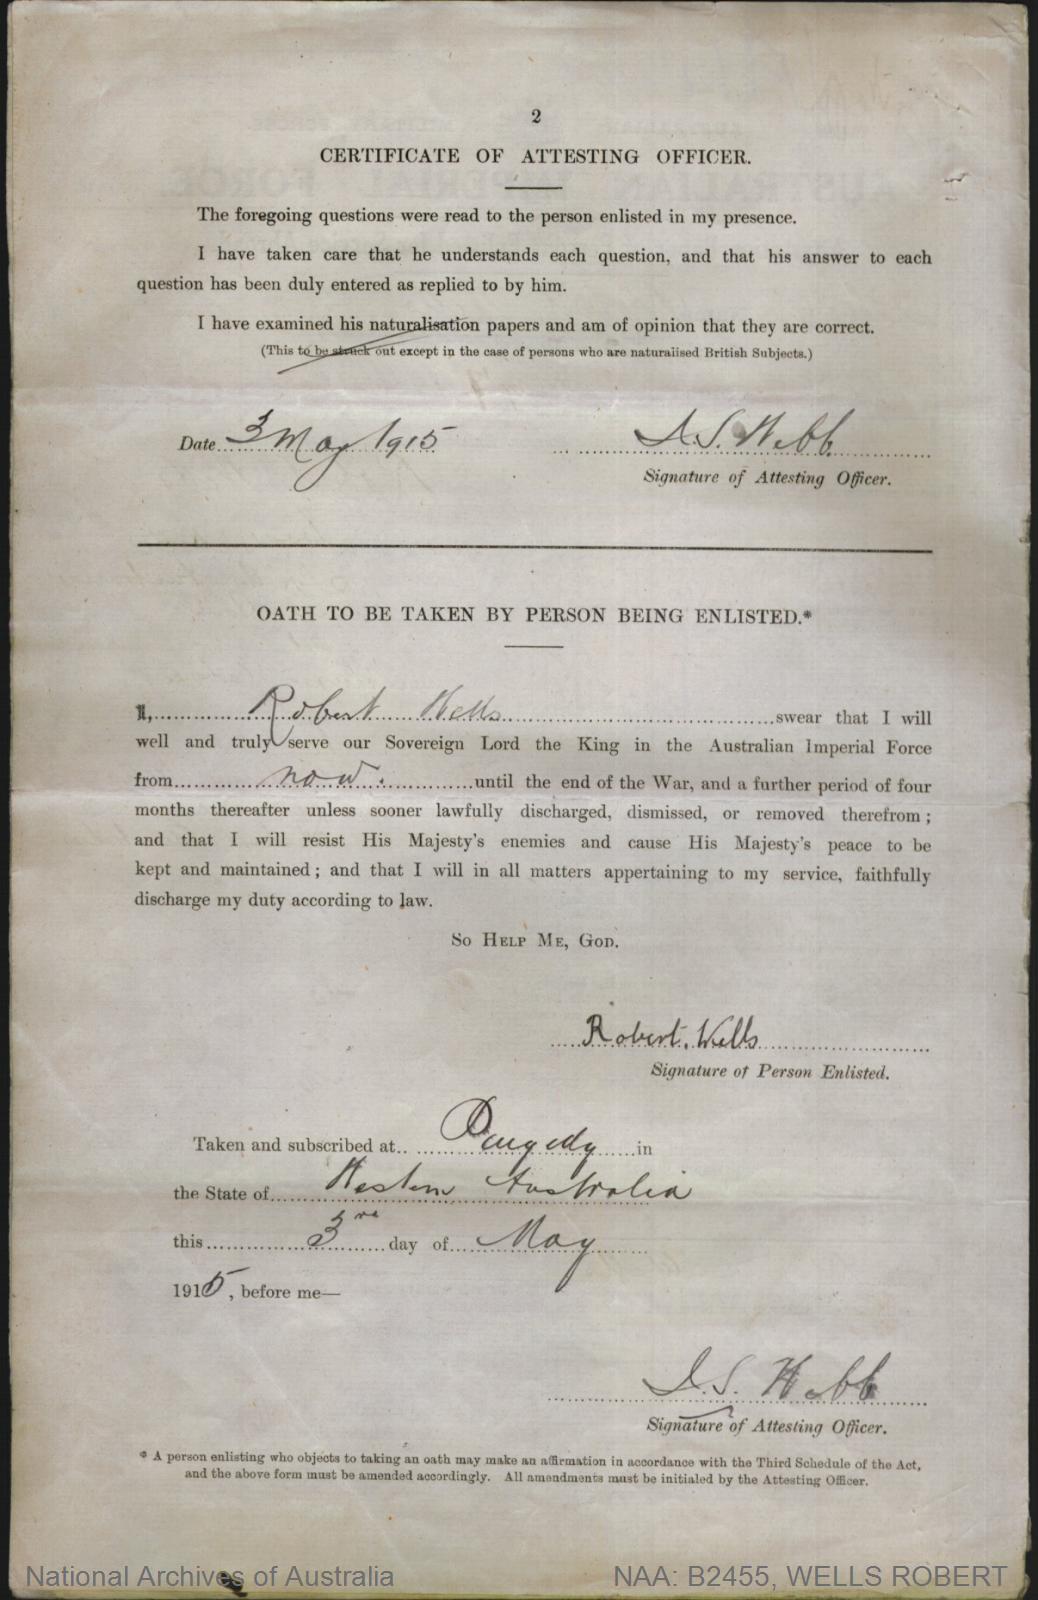 2
CERTIFICATE OF ATTESTING OFFICER.
The foregoing questions were read to the person enlisted in my presence.
I have taken care that he understands each question, and that his answer to each
question has been duly entered as replied to by him.
I have examined his naturalisation papers and am of opinion that they are correct.
(This to be struck out except in the case of persons who are naturalised British Subjects.)
Date 3 May 1915 S. Webb
Signature of Attesting Officer.
OATH TO BE TAKEN BY PERSON BEING ENLISTED.*
I, Robert Wells swear that I will
well and truly serve our Sovereign Lord the King in the Australian Imperial Force
from now. until the end of the War, and a further period of four
months thereafter unless sooner lawfully discharged, dismissed, or removed therefrom ;
and that I will resist His Majesty's enemies and cause His Majesty's peace to be
kept and maintained ; and that I will in all matters appertaining to my service, faithfully
discharge my duty according to law.
So Help Me, God.
Robert. Wells
Signature of Person Enlisted.
Taken and subscribed at in
the State of Western Australia
this 3rd day of May
1915, before me—
S. Webb
Signature of Attesting Officer.
* A person enlisting who objects to taking an oath may make an affirmation in accordance with the Third Schedule of the Act,
and the above form must be amended accordingly. All amendments must be initialed by the Attesting Officer.
National Archives of Australia NAA: B2455, WELLS ROBERT